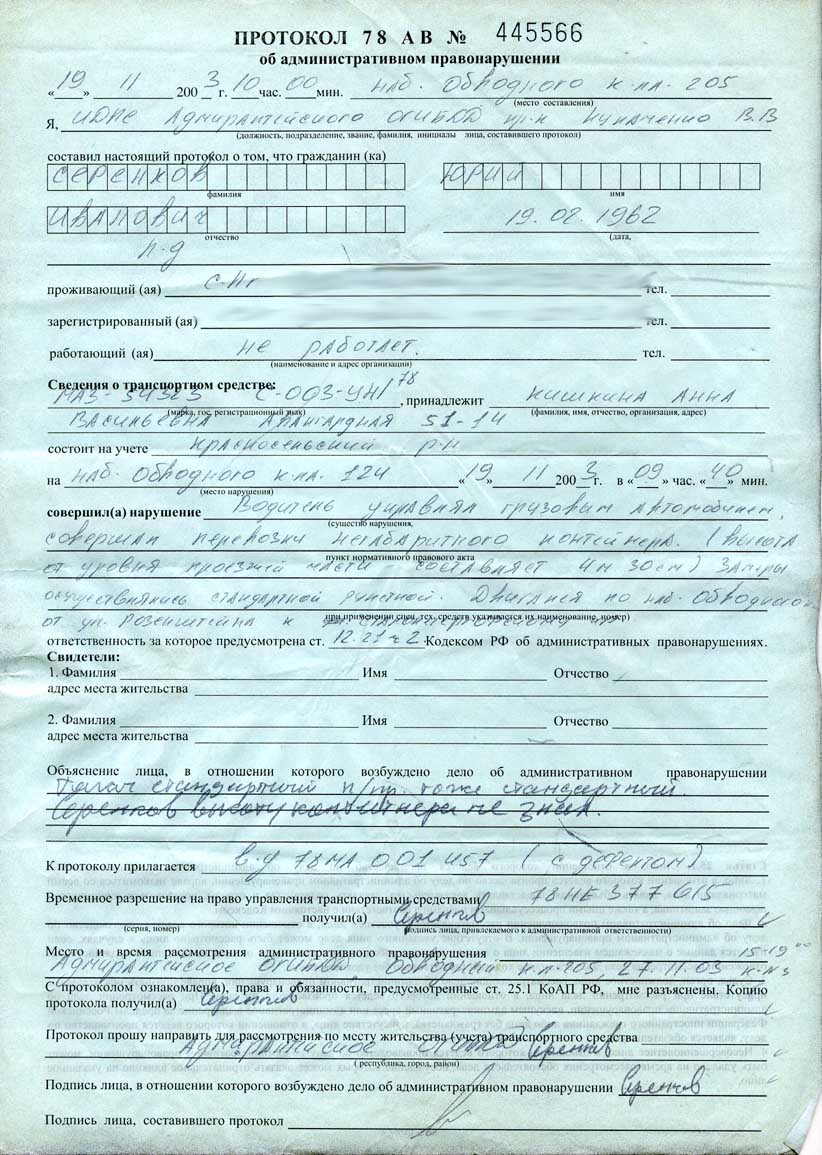 ПРОТОКОЛ 78 АВ № 445566
об административном правонарушении
«19» 11 2003 г. 10 час. 00 мин. наб. Обводного к-ла. 205
(место составления)
Я, ИДПС Адмиралтейского ОГИБДД пр-к В.В
(должность, подразделение, звание, фамилия, инициалы лица, составившего протокол)
составил настоящий протокол о том, что гражданин (ка)
СЕРЕНКОВ ЮРИЙ
фамилия имя
ИВАНОВИЧ 19.02.1962
отчество (дата,
Л-д
проживающий (ая) тел.
зарегистрированный (ая) тел.
работающий (ая) не работает. тел.
(наименование и адрес организации)
Сведения о транспортном средстве:
МАЗ-54323 С-003-УН 78, принадлежит Кишкина Анна
(марка, гос. регистрационный знак) (фамилия, имя, отчество, организация, адрес)
Васильевна Авангардная 51-14
состоит на учете Красносельский р-н
на наб. Обводного к-ла. 124 «19» 11 2003 г. в «09» час. «40» мин.
(место нарушения)
совершил(а) нарушение Водитель управлял грузовым автомобилем,
(существо нарушения,
совершал перевозки негабаритного контейнера. (высота
пункт нормативного правового акта
от уровня проезжей части составляет 4м 30см) Замеры
осуществлялись стандартной рулеткой. Двигался по наб. Обводного
при применении спец. тех. средств указывается их наименование, номер)
от ул. Розенштейна к
ответственность за которое предусмотрена ст. 12.21 ч 2 Кодексом РФ об административных правонарушениях.
Свидетели:
1. Фамилия Имя Отчество
адрес места жительства
2. Фамилия Имя Отчество
адрес места жительства
Объяснение лица, в отношении которого возбуждено дело об административном правонарушении
Тягач стандартный п/пр. тоже стандартный.
Серенков высоту контейнера не знал.
К протоколу прилагается в.у 78 МА 001457 (с дефектом)
Временное разрешение на право управления транспортными средствами 78 НЕ 377615
получил(а) Серенков
(серия, номер) (подпись лица, привлекаемого к административной ответственности)
Место и время рассмотрения административного правонарушения 15-19 00
Адмиралтейское ОГИБДД Обводный к-л-205, 27.11.03 к-м 3
С протоколом ознакомлен(а), права и обязанности, предусмотренные ст. 25.1 КоАП РФ, мне разъяснены. Копию
протокола получил(а) Серенков
Протокол прошу направить для рассмотрения по месту жительства (учета) транспортного средства
Адмиралтейское ОГИБДД Серенков
( республика, город, район)
Подпись лица, в отношении которого возбуждено дело об административном правонарушении Серенков
Подпись лица, составившего протокол